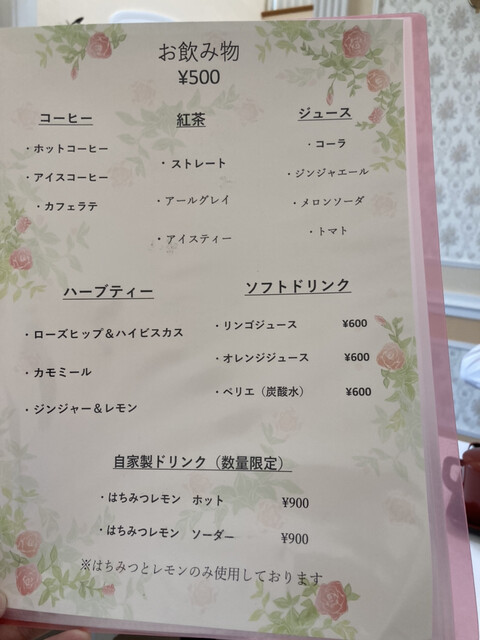 お飲み物
¥500
コーヒー
・ホットコーヒー
・アイスコーヒー
・カフェラテ
紅茶
・ストレート
・アールグレイ
・アイスティー
ジュース
・コーラ
・ジンジャエール
・メロンソーダ
・トマト
ハーブティー
・ローズヒップ＆ハイビスカス
・カモミール
・ジンジャー＆レモン
ソフトドリンク
・リンゴジュース ¥600
・オレンジジュース ¥600
・ペリエ（炭酸水） ¥600
自家製ドリンク（数量限定）
・はちみつレモン ホット ¥900
・はちみつレモン ソーダー ¥900
※はちみつとレモンのみ使用しております